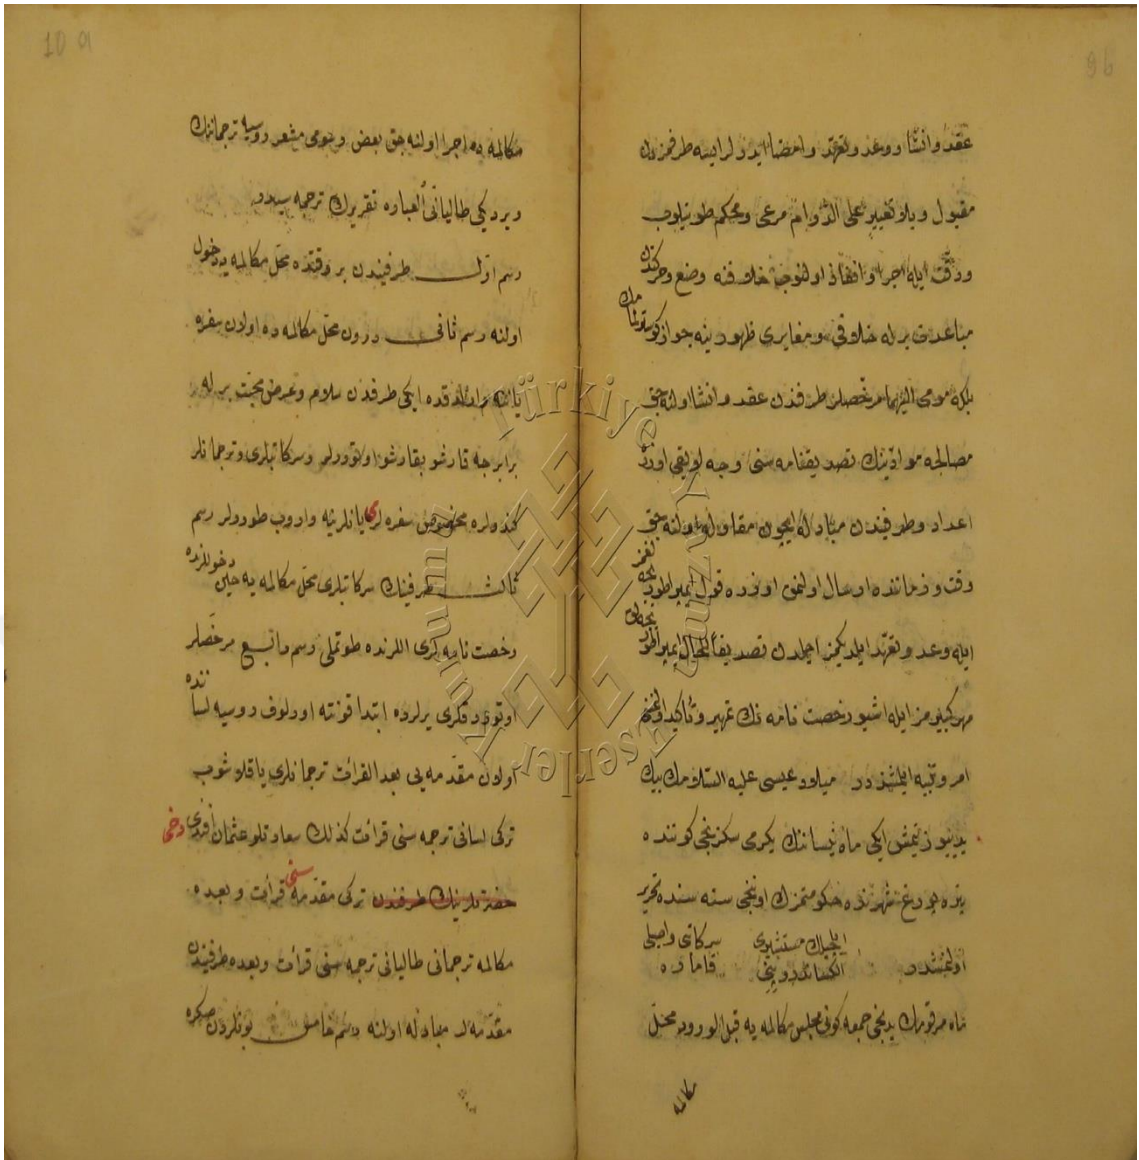 9b
عقد و انشا و وعد و تعهد و امضا ايدرلر ايسه طرفمزدن
مقبول و بلا تغيير على الدوام مرعى و محكم طوتيلوب
و دقت ايله اجرا و انفاذ اولنوب خلافنه وضع و حركتدن
مباعدت برله خلافى و مغايرى ظهورينه جواز كوسترلمامك
بلكه مومى اليهما مرخصلر طرفندن عقد و انشا اولنه جق
مصالحه موادينك تصديقنامه سنى وجه لايقى اوزره
اعداد و طرفيندن مبادله ايچون مقاوله اولنه جق
وقت و زماننده ارسال اولنمق اوزره قول ايمپراطوريجه لغمز
ايله وعد و تعهد ايلديكمز اجلدن تصديقاً للحال ايمپراطوريجه لق
مهر كبيرمز ايله اشبو رخصت نامه نك تمهير و تأكيد اولنمغه
امر و تنبيه ايلمشزدر ميلاد عيسى عليه السلامك بيك
يديوز يتمش ايكى ماه نيساننك يكرمى سكزنجى كوننده
پتربورغ شهرنده حكومتمزك اوننجى سنه سنده تحرير
اولنمشدر ايلچيلك مستشارى سركاتبى واصلى
الكساندروويچى قامارە
ماه مرقومك يدنجى جمعه كونى مجلس مكالمه يه قبل الورود محل
مكالمه
10a
مكالمه ده اجرا اولنه جق بعض رسومى مشعر روسيه ترجماننك
ويرديكى طاليانى العباره تقريرك ترجمه سيدر
رسم اول طرفيندن بر وقتده محل مكالمه يه دخول
اولنه رسم ثانى درون محل مكالمه ده اولان سفره
ياننه وارلدقده ايكى طرفدن سلام و عرض محبت برله
برابرجه قارشو بقارشو اوتوررلر و سركاتبلرى و ترجمانلر
كندولره مخصوص سفره لرى يانلرينه واروب طوررلر رسم
ثالث طرفينك سركاتبلرى محل مكالمه يه حين دخوللرنده
رخصت نامه لرى اللرنده طوتملى رسم رابع مرخصلر
اوتوردقلرى يرلرده ابتدا قونته اورلوف روسيه لساننده
اولان مقدمه يى بعد القرائت ترجمانلرى ياقلاشوب
تركى لسانى ترجمه سنى قرائت كذلك سعادتلو عثمان افندى دخى
حضرتلرينك طرفندن تركى مقدمه سنى قرائت و بعده
مكالمه ترجمانى طاليانى ترجمه سنى قرائت و بعده طرفيندن
مقدمه لر مبادله اولنه رسم خامس بونلردن صكره
Türkiye Yazma Eserler Kurumu